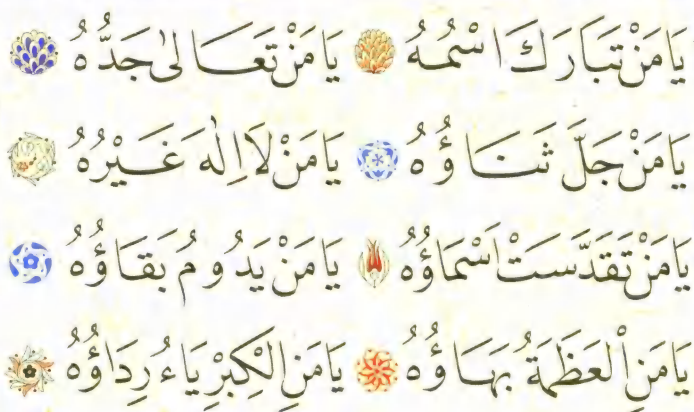 يَا مَنْ تَبَارَكَ اسْمُهُ يَا مَنْ تَعَالٰى جَدُّهُ
يَا مَنْ جَلَّ ثَنَاؤُهُ يَا مَنْ لَا اِلٰهَ غَيْرُهُ
يَا مَنْ تَقَدَّسَتْ اَسْمَاؤُهُ يَا مَنْ يَدُومُ بَقَاؤُهُ
يَا مَنِ الْعَظَمَةُ بَهَاؤُهُ يَا مَنِ الْكِبْرِيَاءُ رِدَاؤُهُ